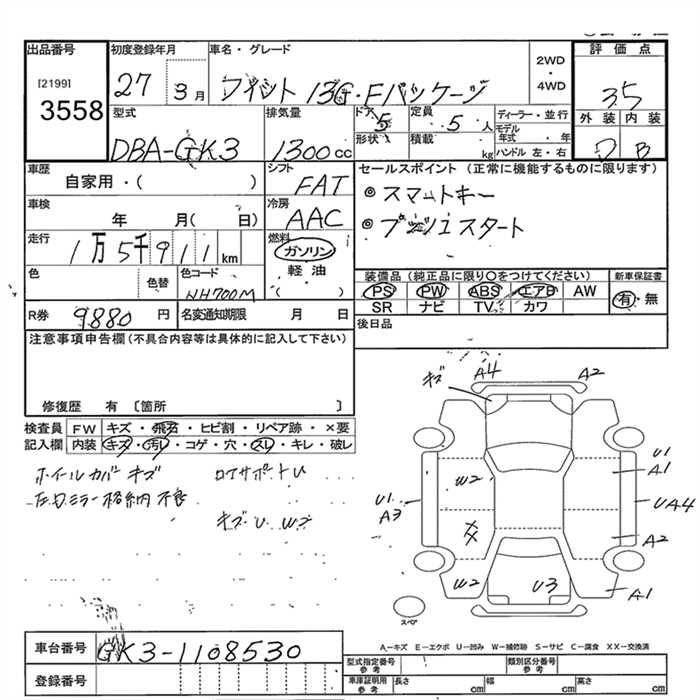 出品番号
[2199]
3558
初度登録年月
27 3月
車名・グレード
フィット 13G・Fパッケージ
2WD
・
4WD
評価点
3.5
外装 内装
B
型式
DBA-GK3
排気量
1300cc
ドア
5
形状
定員
5人
積載
kg
ディーラー・並行
モデル年式 ・ 年
ハンドル 左・右
車歴
自家用・( )
シフト
FAT
車検
年 月( 日)
冷房
AAC
走行
1万5千911km
燃料
ガソリン
軽油
( )
色
色替
色コード
NH700M
R券
9880円
名変通知期限 月 日
セールスポイント (正常に機能するものに限ります)
◎スマートキー
◎プッシュスタート
装備品 (純正品に限り○をつけてください)
PS PW ABS エアB AW
SR ナビ TV カワ
新車保証書
有・無
後日品
注意事項申告欄(不具合内容等は具体的に記入して下さい)
修復歴 有 〔箇所 〕
検査員記入欄
FW キズ・飛石・ヒビ割・リペア跡・×要
内装 キズ・汚レ・コゲ・穴・スレ・キレ・破レ
ホイールカバーキズ
ロアサポートU
ミラー格納不良
キズ・U W2
キズ
A4
A2
W2
U1
A1
U1
A3
UA4
XX
A2
W2
U3
A1
スペア
A―キズ E―エクボ U―凹み W―補修跡 S―サビ C―腐食 XX―交換済
車台番号
GK3-1108530
登録番号
型式指定番号
参考
類別区分番号
参考
車庫証明用
参考
長さ cm
幅 cm
高さ cm